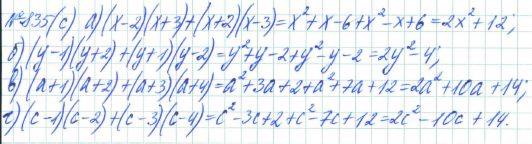 №835(с) а) (x-2)(x+3)+(x+2)(x-3)=x²+x-6+x²-x+6=2x²+12;
б) (y-1)(y+2)+(y+1)(y-2)=y²+y-2+y²-y-2=2y²-4;
в) (a+1)(a+2)+(a+3)(a+4)=a²+3a+2+a²+7a+12=2a²+10a+14;
г) (c-1)(c-2)+(c-3)(c-4)=c²-3c+2+c²-7c+12=2c²-10c+14.